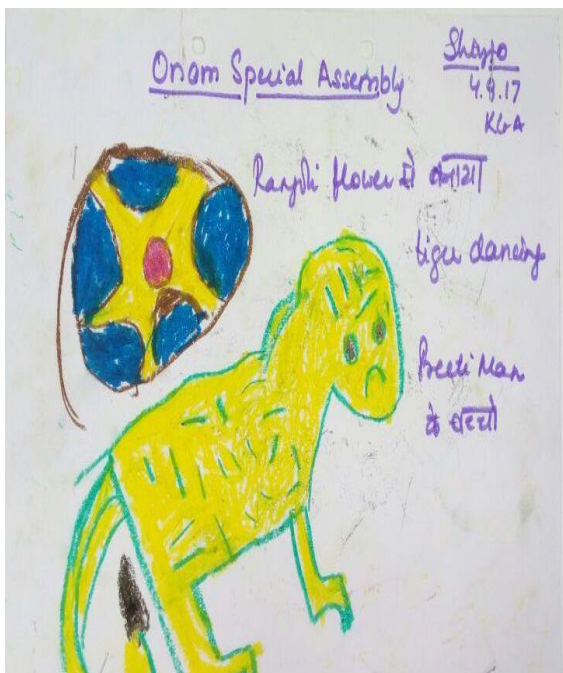 Onam Special Assembly
Shayro
4.9.17
KGA
Rangoli flower से बनाया
tiger dancing
Preeti Mam
के बच्चो